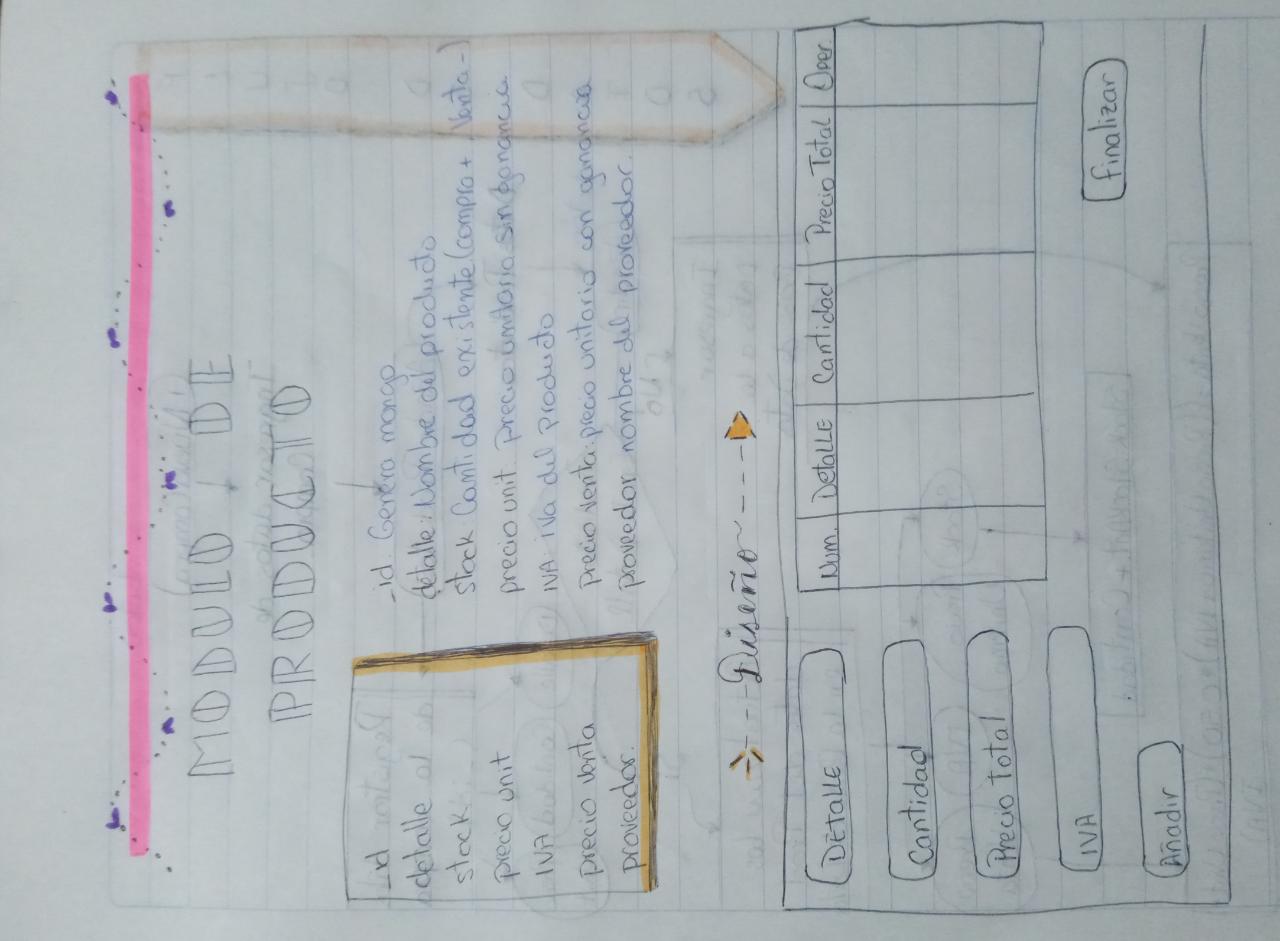 MODULO DE
PRODUCTO
_id
detalle
stock
precio unit
IVA
precio venta
proveedor.
_id: Genera mongo
detalle: Nombre del producto
stock: Cantidad existente (compra + Venta -)
precio unit precio unitario sin ganancia
IVA iva del producto
precio venta: precio unitario con ganancia
proveedor nombre del proveedor.
Diseño
DETALLE
Cantidad
Precio Total
IVA
Añadir
Num. Detalle Cantidad Precio Total Oper
Finalizar